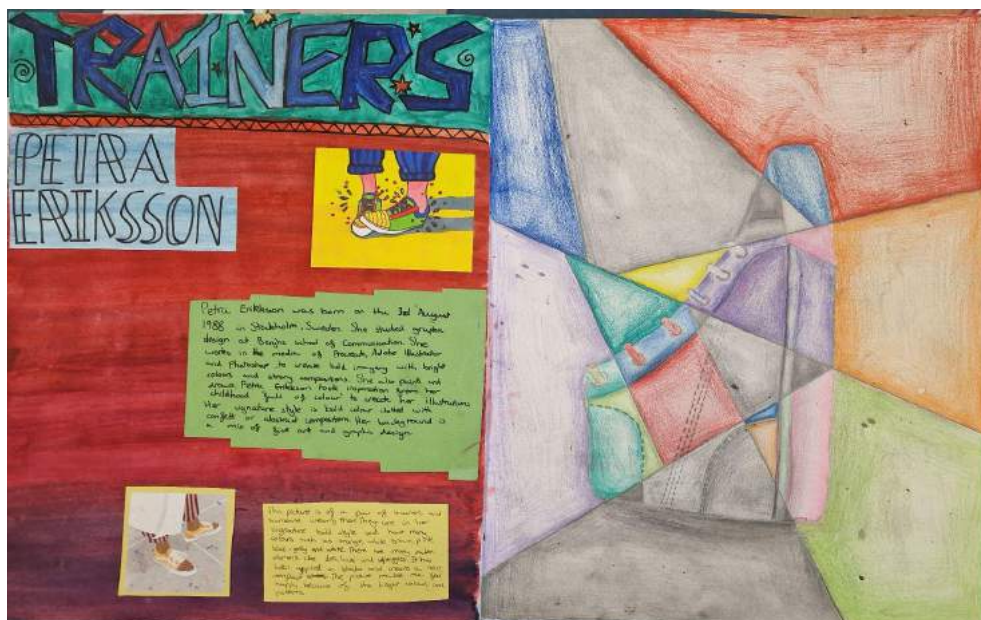 TRAINERS
PETRA
ERIKSSON
Petra Eriksson was born on the 3rd August
1988 in Stockholm, Sweden. She studied graphic
design at Berghs school of Communication. She
works in the media of Procreate, Adobe Illustrator
and Photoshop to create bold imagery with bright
colours and strong compositions. She also paints and
draws. Petra Eriksson took inspiration from her
childhood 'full of colour' to create her illustrations
Her signature style is bold colour dotted with
confetti or abstract compositions. Her background is
a mix of fine art and graphic design.
This picture is of a pair of trainers and
someone wearing them. They are in her
signature bold style and have many
colours such as orange, white, brown, pink
grey and white. There are many
like
applied in blocks and
The picture makes me feel
happy because of the bright colours and
patterns.